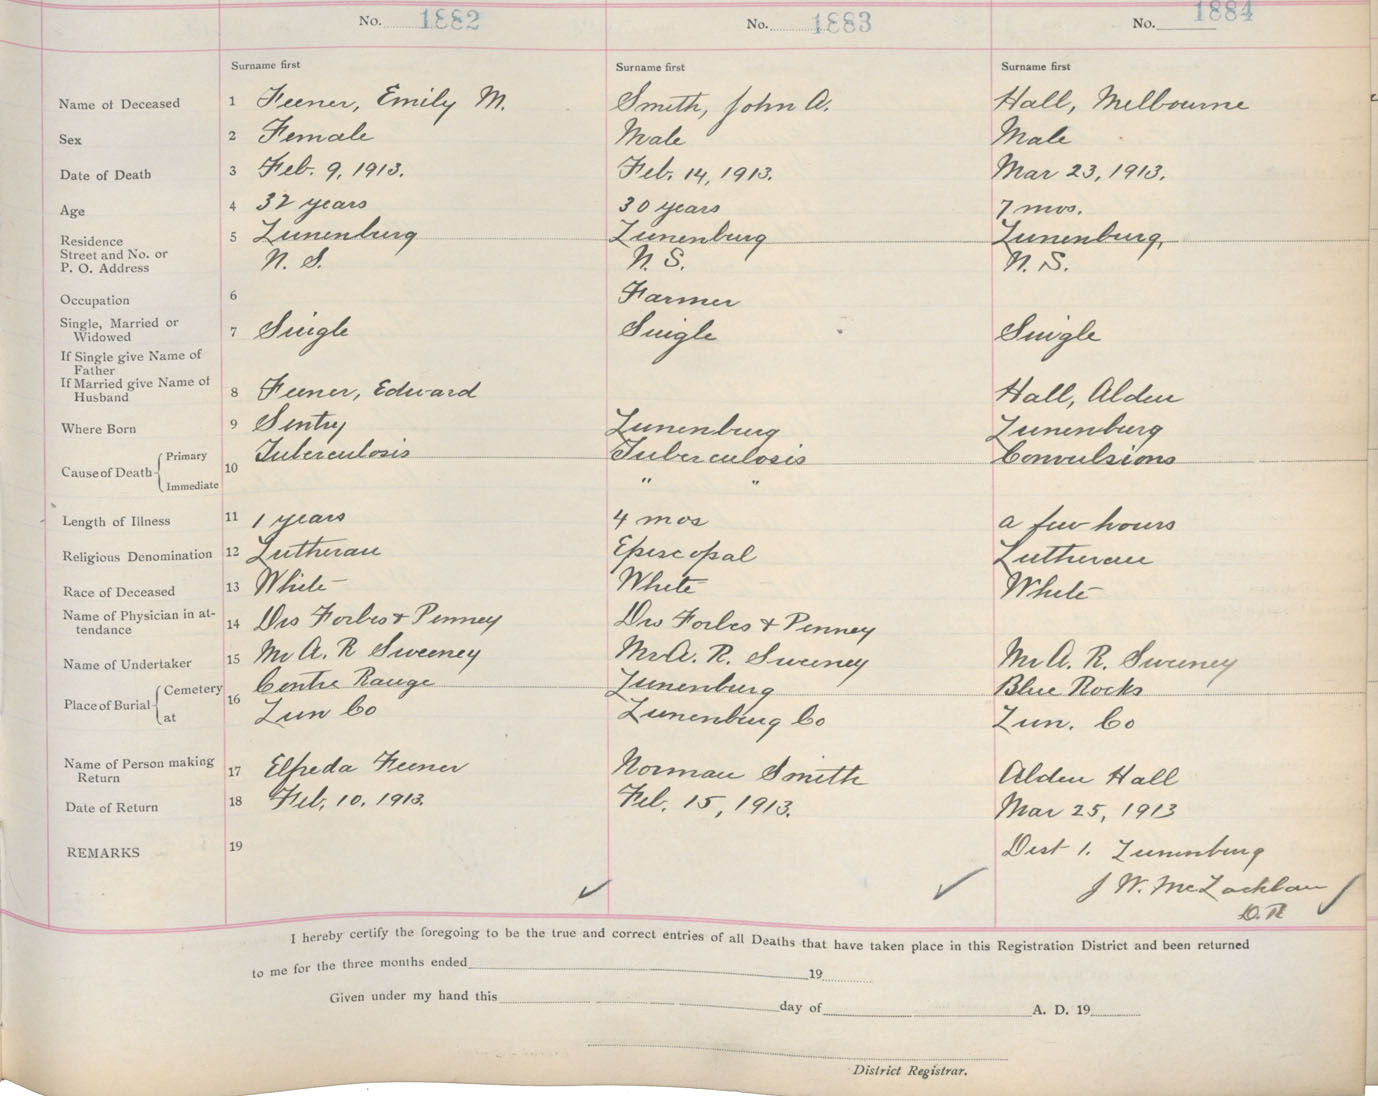 No. 1882 No. 1883 No. 1884
Surname first Surname first Surname first
Name of Deceased 1 Feener, Emily M. Smith, John A. Hall, Melbourne
Sex 2 Female Male Male
Date of Death 3 Feb. 9, 1913. Feb. 14, 1913. Mar 23, 1913.
Age 4 32 years 30 years 7 mos.
Residence 5 Lunenburg Lunenburg Lunenburg,
Street and No. or
P. O. Address N. S. N. S. N. S.
Occupation 6 Farmer
Single, Married or
Widowed 7 Single Single Single
If Single give Name of
Father
If Married give Name of
Husband 8 Feener, Edward Hall, Alden
Where Born 9 Sentry Lunenburg Lunenburg
Cause of Death Primary 10 Tuberculosis Tuberculosis Convulsions
Immediate " "
Length of Illness 11 1 years 4 mos a few hours
Religious Denomination 12 Lutheran Episcopal Lutheran
Race of Deceased 13 White White White
Name of Physician in at-
tendance 14 Drs Forbes & Penney Drs Forbes & Penney
Name of Undertaker 15 Mr A. R Sweeney Mr A. R. Sweeney Mr A. R. Sweeney
Place of Burial Cemetery 16 Centre Range Lunenburg Blue Rocks
at Lun Co Lunenburg Co Lun. Co
Name of Person making
Return 17 Elfreda Feener Norman Smith Alden Hall
Date of Return 18 Feb. 10. 1913. Feb. 15, 1913. Mar 25, 1913
REMARKS 19 Dist 1. Lunenburg
J W. McLachlan
D. R
I hereby certify the foregoing to be the true and correct entries of all Deaths that have taken place in this Registration District and been returned
to me for the three months ended 19
Given under my hand this day of A. D. 19
District Registrar.